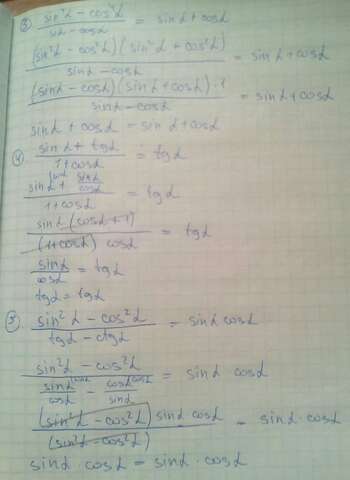 ③ (sin⁴α − cos⁴α)/(sinα − cosα) = sinα + cosα
((sin²α − cos²α)(sin²α + cos²α))/(sinα − cosα) = sinα + cosα
((sinα − cosα)(sinα + cosα)·1)/(sinα − cosα) = sinα + cosα
sinα + cosα = sinα + cosα
④ (sinα + tgα)/(1 + cosα) = tgα
(sinα + sinα/cosα)/(1 + cosα) = tgα
(sinα (cosα + 1))/((1 + cosα) cosα) = tgα
sinα/cosα = tgα
tgα = tgα
⑤ (sin²α − cos²α)/(tgα − ctgα) = sinα cosα
(sin²α − cos²α)/(sinα/cosα − cosα/sinα) = sinα cosα
((sin²α − cos²α) sinα cosα)/(sin²α − cos²α) = sinα · cosα
sinα · cosα = sinα · cosα